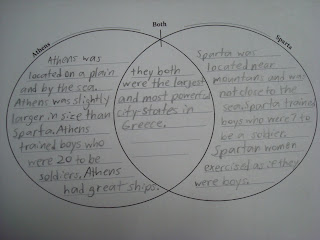 Both
Athens
Sparta
Athens was
located on a plain
and by the sea.
Athens was slightly
larger in size than
Sparta. Athens
trained boys who
were 20 to be
soldiers. Athens
had great ships.
they both
were the largest
and most powerful
city-states in
Greece.
Sparta was
located near
mountains and was
not close to the
sea. Sparta trained
boys who were 7 to
be a soldier.
Spartan women
exercised as if they
were boys.